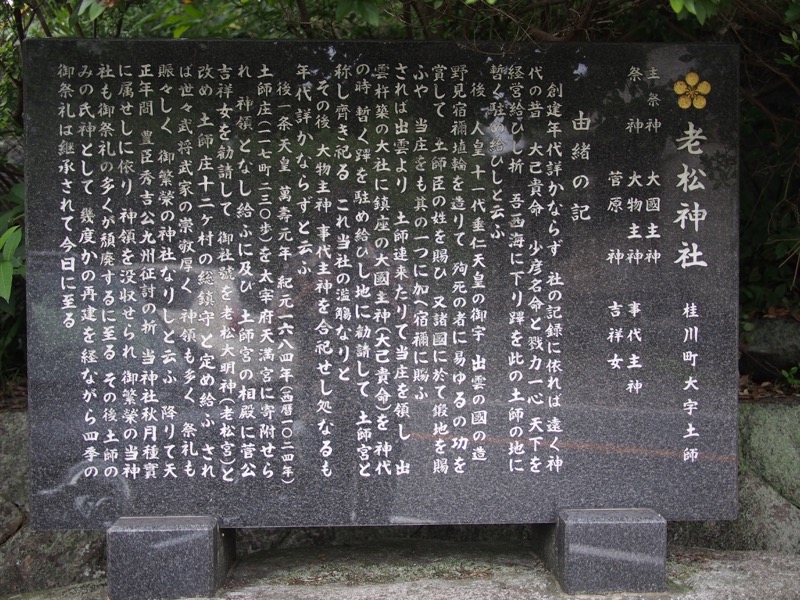 老松神社 桂川町大字土師
主祭神 大國主神 事代主神
祭神 大物主神 吉祥女
菅原神
由緒の記
創建年代詳かならず 社の記録に依れば 遠く神
代の昔 大己貴命 少彦名命と戮力一心 天下を
経営給ひし折 吾西海に下り蹕を此の土師の地に
暫く駐め給ひしと云ふ
後 人皇十一代垂仁天皇の御宇 出雲の國の造
野見宿禰埴輪を造りて 殉死の者に易ゆるの功を
賞して 土師臣の姓を賜ひ 又諸國に於て煅地を賜
ふや 当庄をも其の一つに加へ宿禰に賜ふ
されは出雲より 土師連来たりて当庄を領し 出
雲杵築の大社に鎮座の大國主神(大己貴命)を 神代
の時 暫く蹕を駐め給ひし地に勧請して 土師宮と
称し齊き祀る これ当社の濫觴なりと
その後 大物主神 事代主神を合祀せし処なるも
年代詳かならずと云ふ
後一条天皇 萬壽元年 紀元一六八四年(西暦一〇二四年)
土師庄(一七町二三〇歩)を太宰府天満宮に寄附せら
れ 神領となし給ふに及び 土師宮の相殿に菅公
吉祥女を勧請して 御社號を老松大明神(老松宮)と
改め 土師庄十二ヶ村の総鎮守と定め給ふ され
ば世々武将武家の崇敬厚く 神領も多く 祭礼も
賑々しく 御繁榮の神社なりしと云ふ 降りて天
正年間 豊臣秀吉公九州征討の折 当神社秋月種實
に属せしに依り 神領を没収せられ 御繁榮の当神
社も御祭礼の多くが頽廃するに至る その後土師の
みの氏神として 幾度かの再建を経ながら四季の
御祭礼は継承されて今日に至る